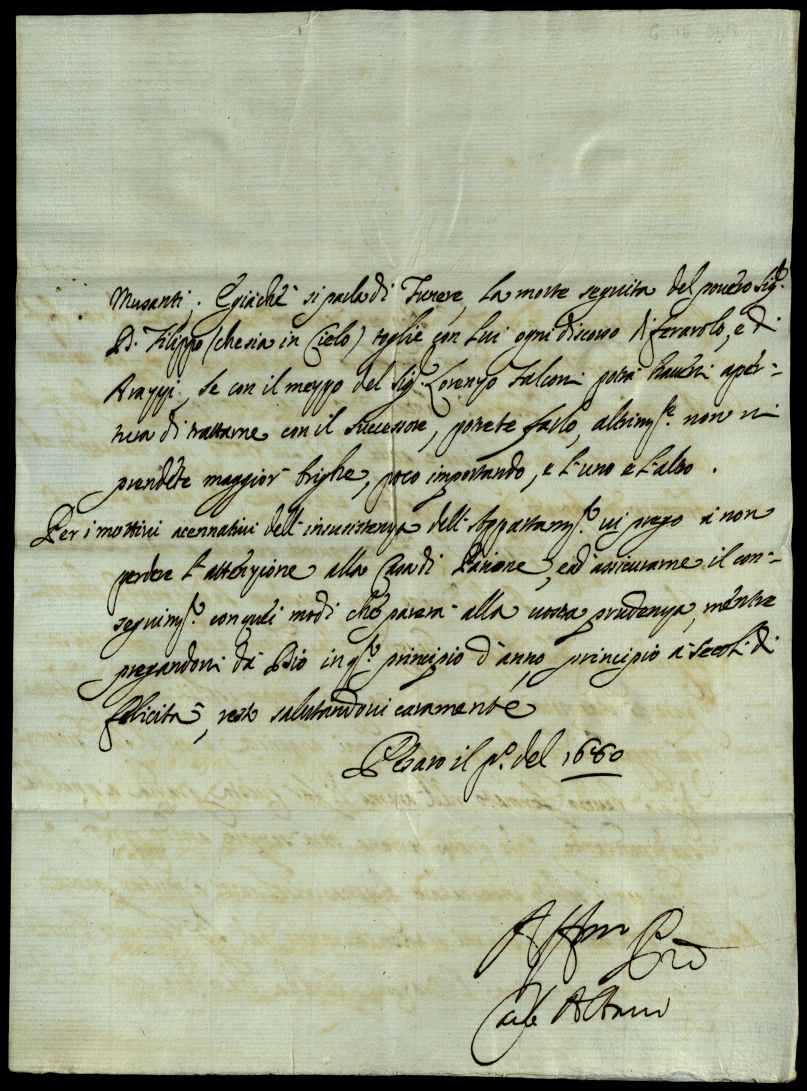 Musanti. E giàchè si parla di Furere, la morte seguita del povero Sig.r
D. Filippo (che sia in Cielo) toglie con lui ogni discorso di ferarolo, e di
Arazzi, se con il mezzo del Sig.r Lorenzo Falconi potrà haversi aper-
tura di trattarne con il successore, potrete farlo, altrim.te non vi
prendete maggior brighe, poco importando, e l'uno e l'altro.
Per i mottivi acennativi dell'insussistenza dell'Appartam.to vi prego à non
perdere l'attenzione alla Casa di Parione, ed assicurarne il con-
seguim.to con quei modi che parerà alla vostra prudenza, mentre
pregandovi da Dio in q.to principio d'anno, principio à secoli di
felicità, resto salutandovi caramente
Pesaro il p.o del 1680
Aff.mo
Carlo Albani